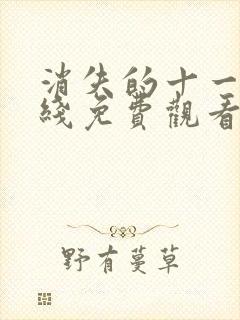 消失的十一
綫免費觀看
野有蔓草